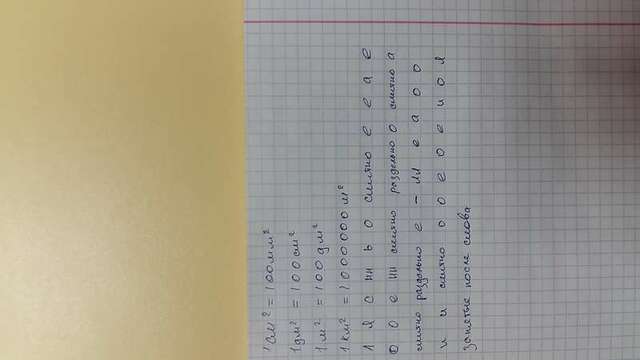 1см² = 100мм²
1дм² = 100см²
1м² = 100дм²
1км² = 1000000м²
1 я с нн ь о слитно е е а е
о о е нн слитно раздельно о слитно а
слитно раздельно е - лл е а о о
и и слитно о о е о е и о я
Запятые после слова